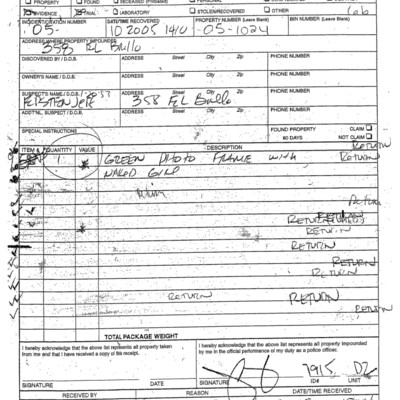 PROPERTY FOUND DECEASED (Firearms)
EVIDENCE TRIAL LABORATORY STOLEN/RECOVERED OTHER Lab
INCIDENT/CITATION NUMBER DATE/TIME RECOVERED PROPERTY NUMBER (Leave Blank) BIN NUMBER (Leave Blank)
05- 102005 1410 05-1024
ADDRESS WHERE PROPERTY IMPOUNDED
358 El Brillo
DISCOVERED BY / D.O.B. ADDRESS Street City Zip PHONE NUMBER
OWNER'S NAME / D.O.B. ADDRESS Street City Zip PHONE NUMBER
SUSPECTS NAME / D.O.B. ADDRESS Street City Zip PHONE NUMBER
358 El Brillo
ADDT'NL. SUSPECT / D.O.B. ADDRESS Street City Zip PHONE NUMBER
SPECIAL INSTRUCTIONS FOUND PROPERTY CLAIM
90 DAYS NOT CLAIM
ITEM # QUANTITY VALUE DESCRIPTION RETURN
1 GREEN PHOTO FRAME WITH RETURN
NAKED GIRL
RETURN
RETURN
RETURN
RETURN
RETURN
RETURN
RETURN RETURN
RETURN
TOTAL PACKAGE WEIGHT
I hereby acknowledge that the above list represents all property taken from me and that I have received a copy of this receipt.
I hereby acknowledge that the above list represents all property impounded by me in the official performance of my duty as a police officer.
7915 D2
SIGNATURE DATE SIGNATURE ID# UNIT
RECEIVED BY REASON DATE/TIME RECEIVED